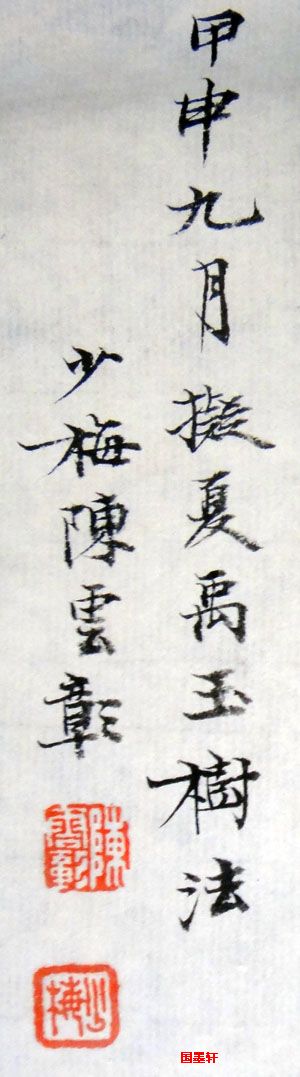 甲申九月擬夏禹玉樹法
少梅陳雲彰
陳雲彰
少梅
国墨轩